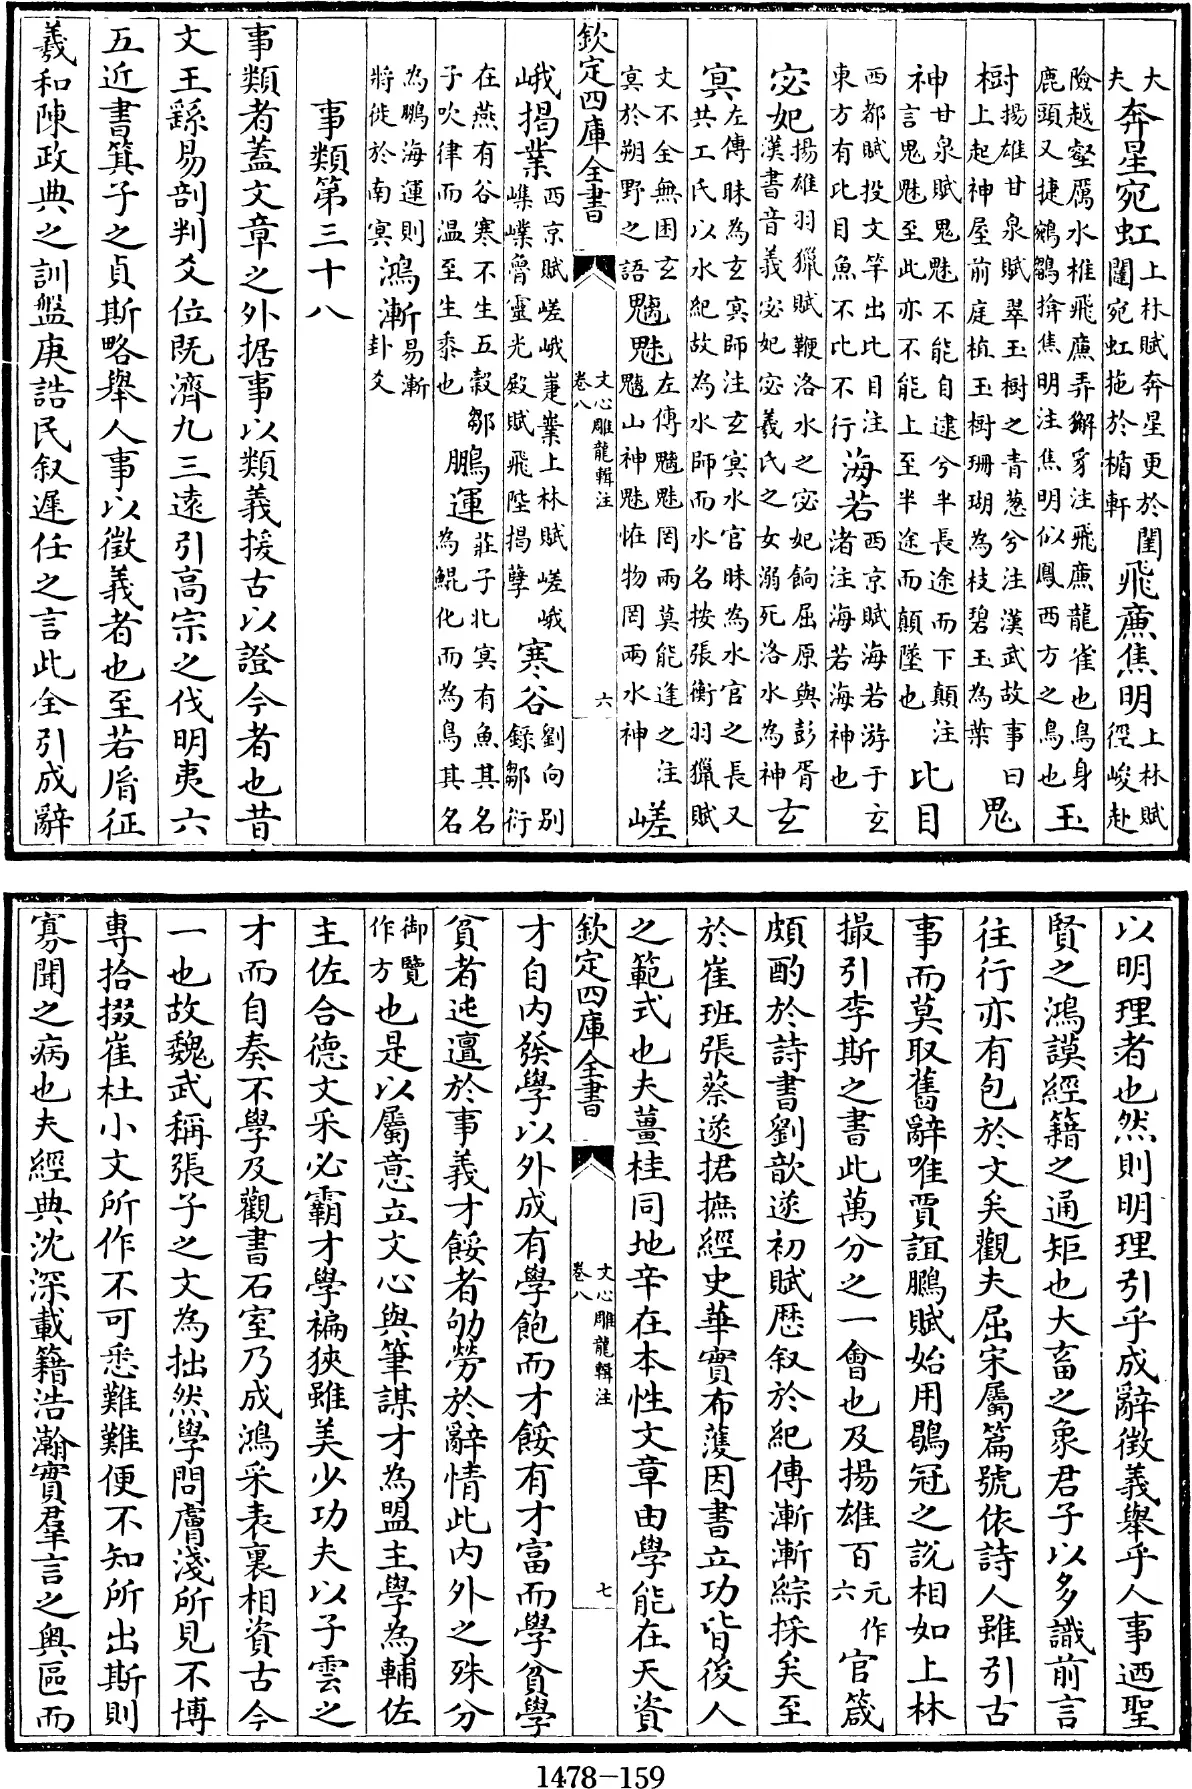 大夫奔星宛虹上林賦奔星更於閨闥宛虹拖於楯軒飛廉焦明上林賦徑峻赴
險越壑厲水椎飛廉弄獬豸注飛廉龍雀也鳥身鹿頭又捷鵷鶵揜焦明注焦明似鳳西方之鳥也玉
樹揚雄甘泉賦翠玉樹之青葱兮注漢武故事曰上起神屋前庭植玉樹珊瑚為枝碧玉為葉鬼
神甘泉賦鬼魅不能自逮兮半長途而下顛注言鬼魅至此亦不能上至半途而顛墜也比目
西都賦投文竿出比目注東方有比目魚不比不行海若西京賦海若游于玄渚注海若海神也
宓妃揚雄羽獵賦鞭洛水之宓妃餉屈原與彭胥漢書音義宓妃宓羲氏之女溺死洛水為神玄
冥左傳昧為玄冥師注玄冥水官昧為水官之長又共工氏以水紀故為水師而水名按張衡羽獵賦
文不全無困玄冥於朔野之語魑魅左傳魑魅罔兩莫能逢之注魑山神魅怪物罔兩水神嵯
欽定四庫全書 文心雕龍輯注 卷八 六
峨揭業西京賦嵯峨崨嶪上林賦嵯峨嶫魯靈光殿賦飛陛揭孽寒谷劉向别錄鄒衍
在燕有谷寒不生五穀鄒子吹律而温至生黍也鵬運莊子北冥有魚其名為鯤化而為鳥其名
為鵬海運則將徙於南冥鴻漸易漸卦爻
事類第三十八
事類者蓋文章之外据事以類義援古以證今者也昔
文王繇易剖判爻位既濟九三遠引高宗之伐明夷六
五近書箕子之貞斯略舉人事以徵義者也至若胤征
羲和陳政典之訓盤庚誥民叙遲任之言此全引成辭
以明理者也然則明理引乎成辭徵義舉乎人事迺聖
賢之鴻謨經籍之通矩也大畜之象君子以多識前言
往行亦有包於文矣觀夫屈宋屬篇號依詩人雖引古
事而莫取舊辭唯賈誼鵩賦始用鶡冠之說相如上林
撮引李斯之書此萬分之一會也及揚雄百元作六官箴
頗酌於詩書劉歆遂初賦歷叙於紀傳漸漸綜採矣至
於崔班張蔡遂捃摭經史華實布濩因書立功皆後人
之範式也夫薑桂同地辛在本性文章由學能在天資
欽定四庫全書 文心雕龍輯注 卷八 七
才自内發學以外成有學飽而才餒有才富而學貧學
貧者迍邅於事義才餒者劬勞於辭情此内外之殊分
御覽作方也是以屬意立文心與筆謀才為盟主學為輔佐
主佐合德文采必霸才學褊狹雖美少功夫以子雲之
才而自奏不學及觀書石室乃成鴻采表裏相資古今
一也故魏武稱張子之文為拙然學問膚淺所見不博
專拾掇崔杜小文所作不可悉難難便不知所出斯則
寡聞之病也夫經典沈深載籍浩瀚實羣言之奥區而
1478-159